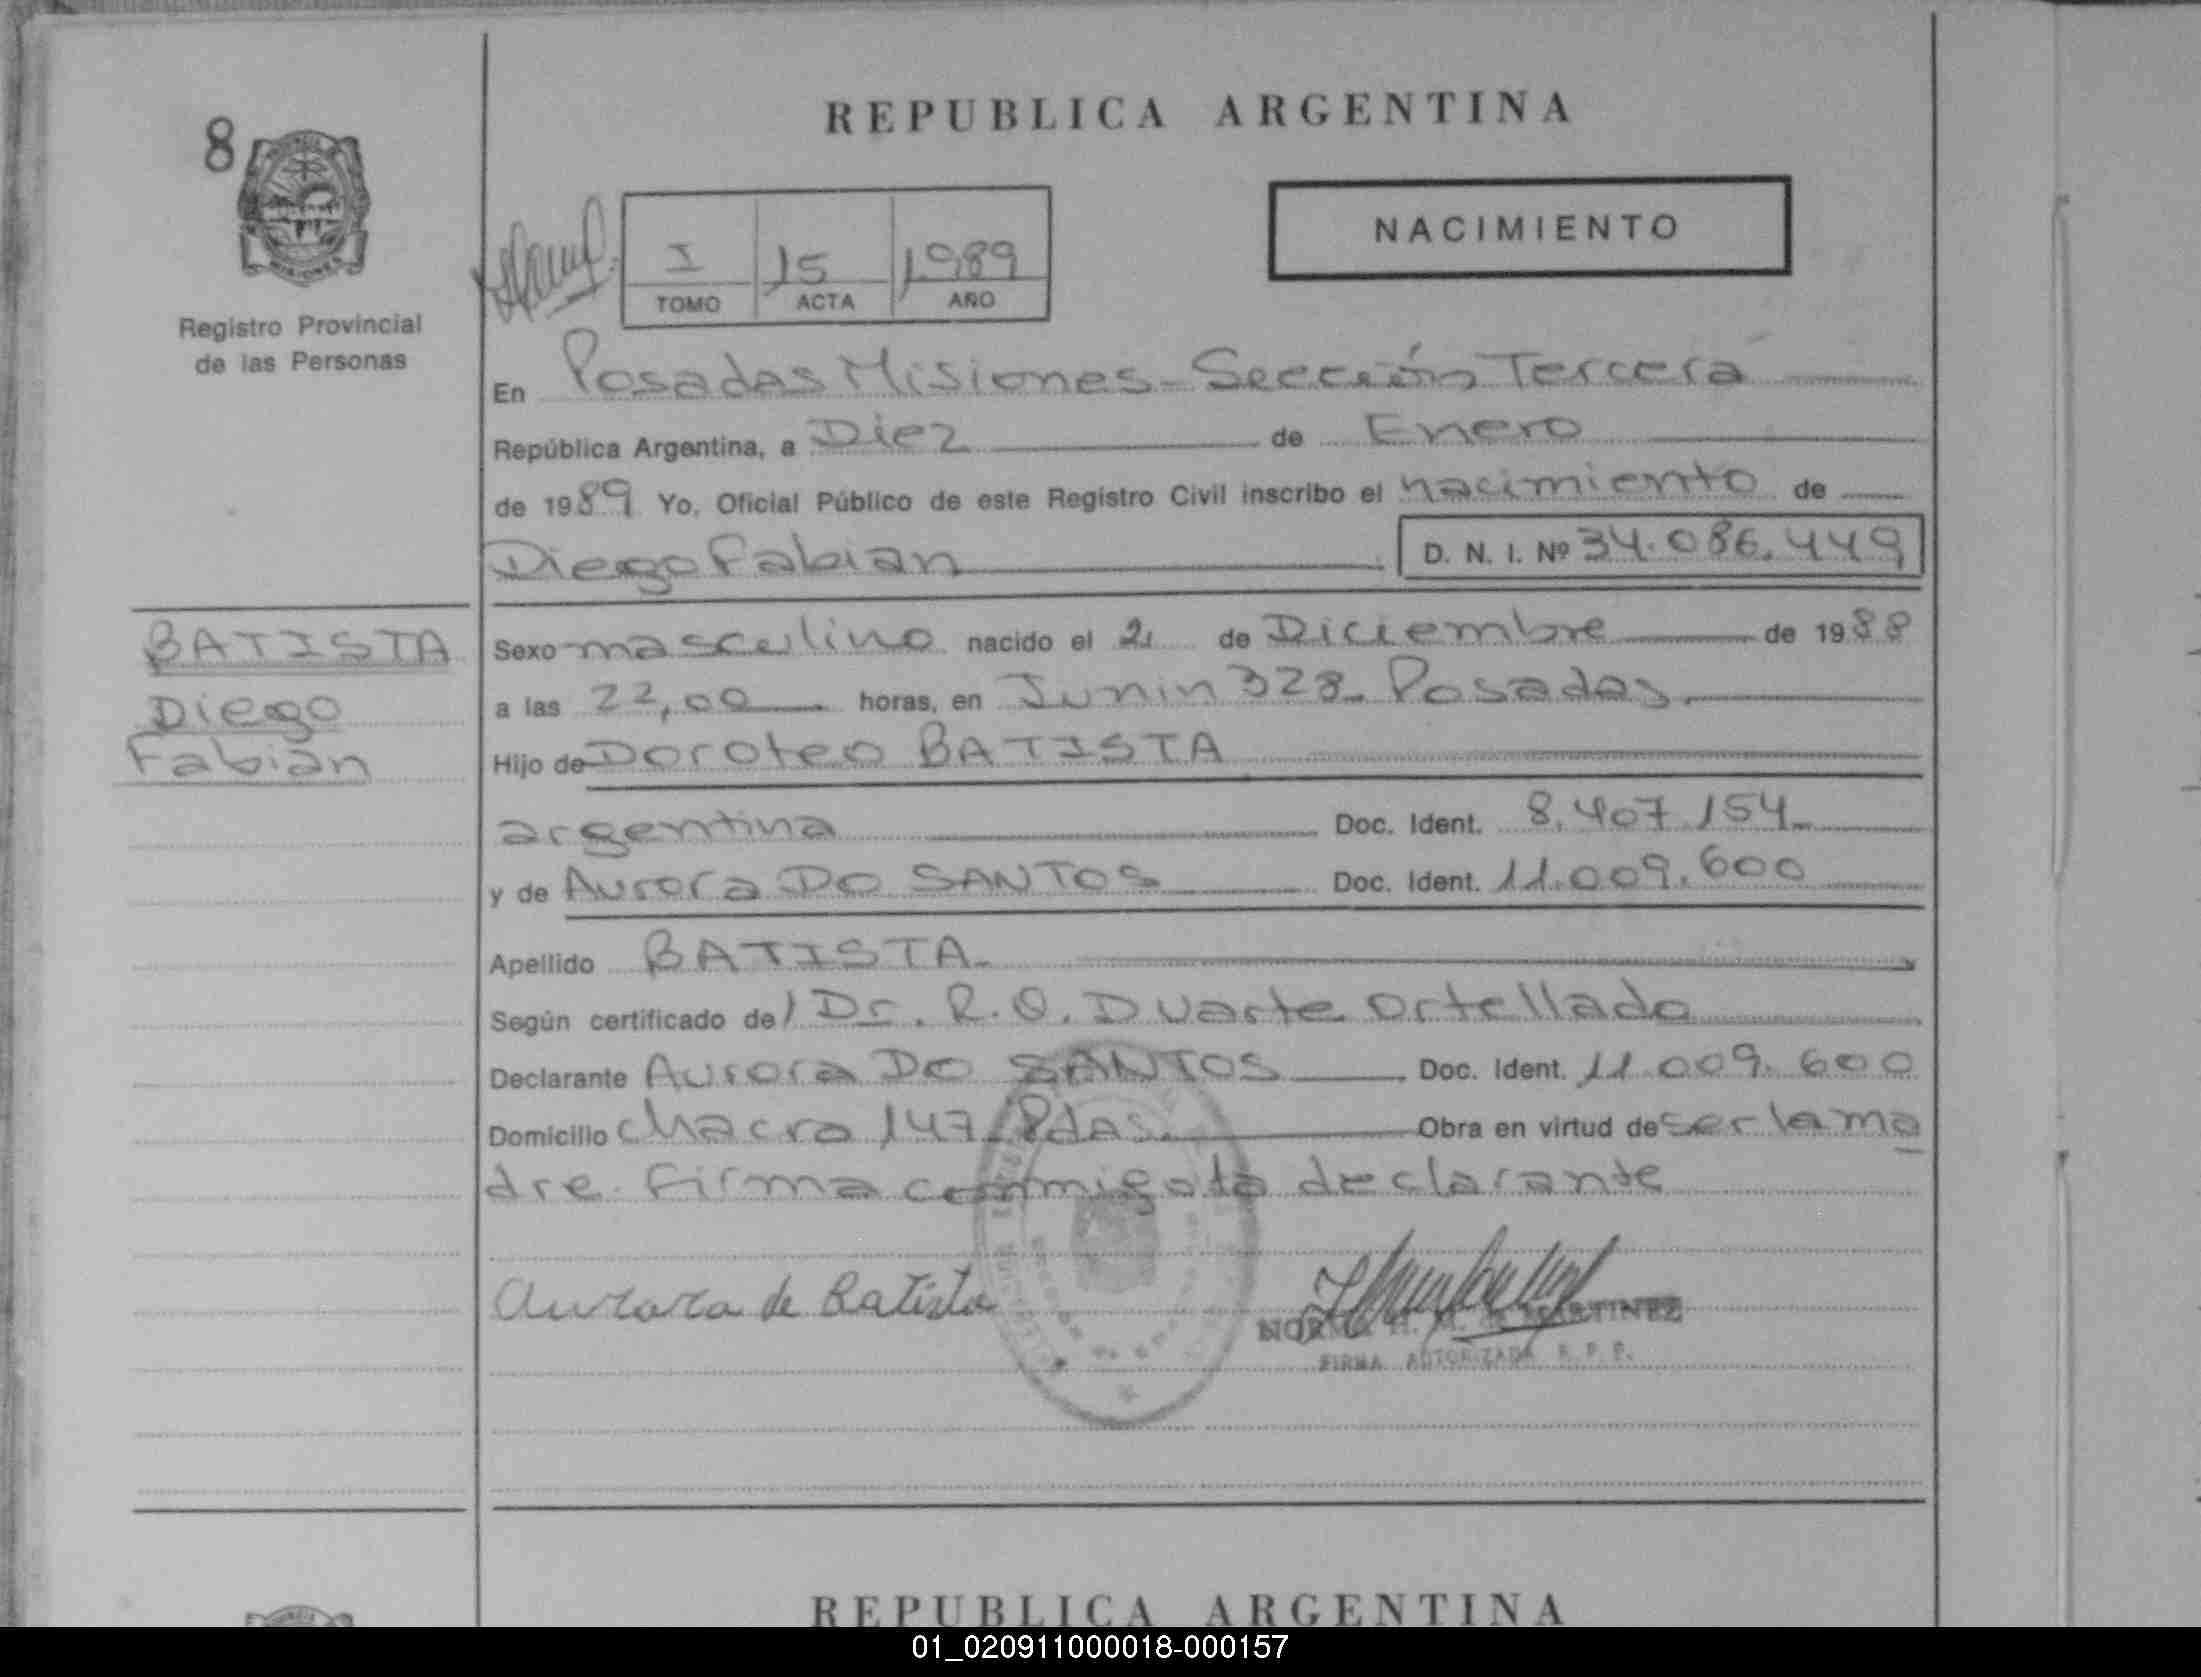 REPUBLICA ARGENTINA
8
NACIMIENTO
I 15 1989
TOMO ACTA AÑO
Registro Provincial
de las Personas
En Posadas Misiones - Sección Tercera
República Argentina, a Diez de Enero
de 1989 Yo, Oficial Público de este Registro Civil inscribo el nacimiento de
Diego Fabian D. N. I. Nº 34.086.449
BATISTA
Diego
Fabian
Sexo masculino nacido el 2 de Diciembre de 1988
a las 22,00 horas, en Junin 328. Posadas.
Hijo de Doroteo BATISTA
argentina Doc. Ident. 8.407.154
y de Aurora DO SANTOS Doc. Ident. 11.009.600
Apellido BATISTA
Según certificado del Dr. R.O. Duarte Ortellado
Declarante Aurora DO SANTOS Doc. Ident. 11.009.600
Domicilio Chacra 147. Pdas. Obra en virtud de ser la ma
dre. Firma conmigo la declarante
Aurora de Batista
NORMA H. M. de MARTINEZ
FIRMA AUTORIZADA R.P.P.
REPUBLICA ARGENTINA
01_020911000018-000157